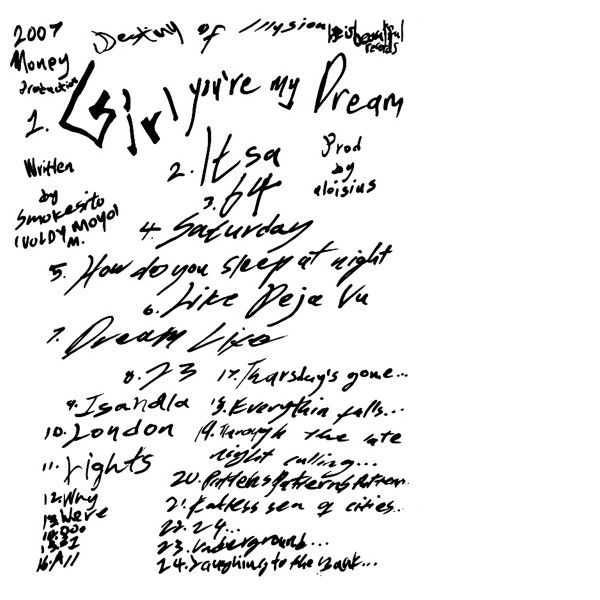 2007
Money
Production
Destiny of Illusion
beautiful
records
1. Girl you're my Dream
Written
by
Smokesito
(VULDY MOYO)
M.
Prod
by
aloisius
2. Itsa
3. 64
4. Saturday
5. How do you sleep at night
6. Like Deja Vu
7. Dream Like
8. 23
9. Isandla
10. London
11. Lights
12. Why
13. Were
14.
15. 21
16. All
17. Tharsday's gone...
18. Everythin falls...
19. Through the late
night calling...
20. Patterns
21. sea of cities..
22. 24...
23. Underground...
24. Laughing to the bank...